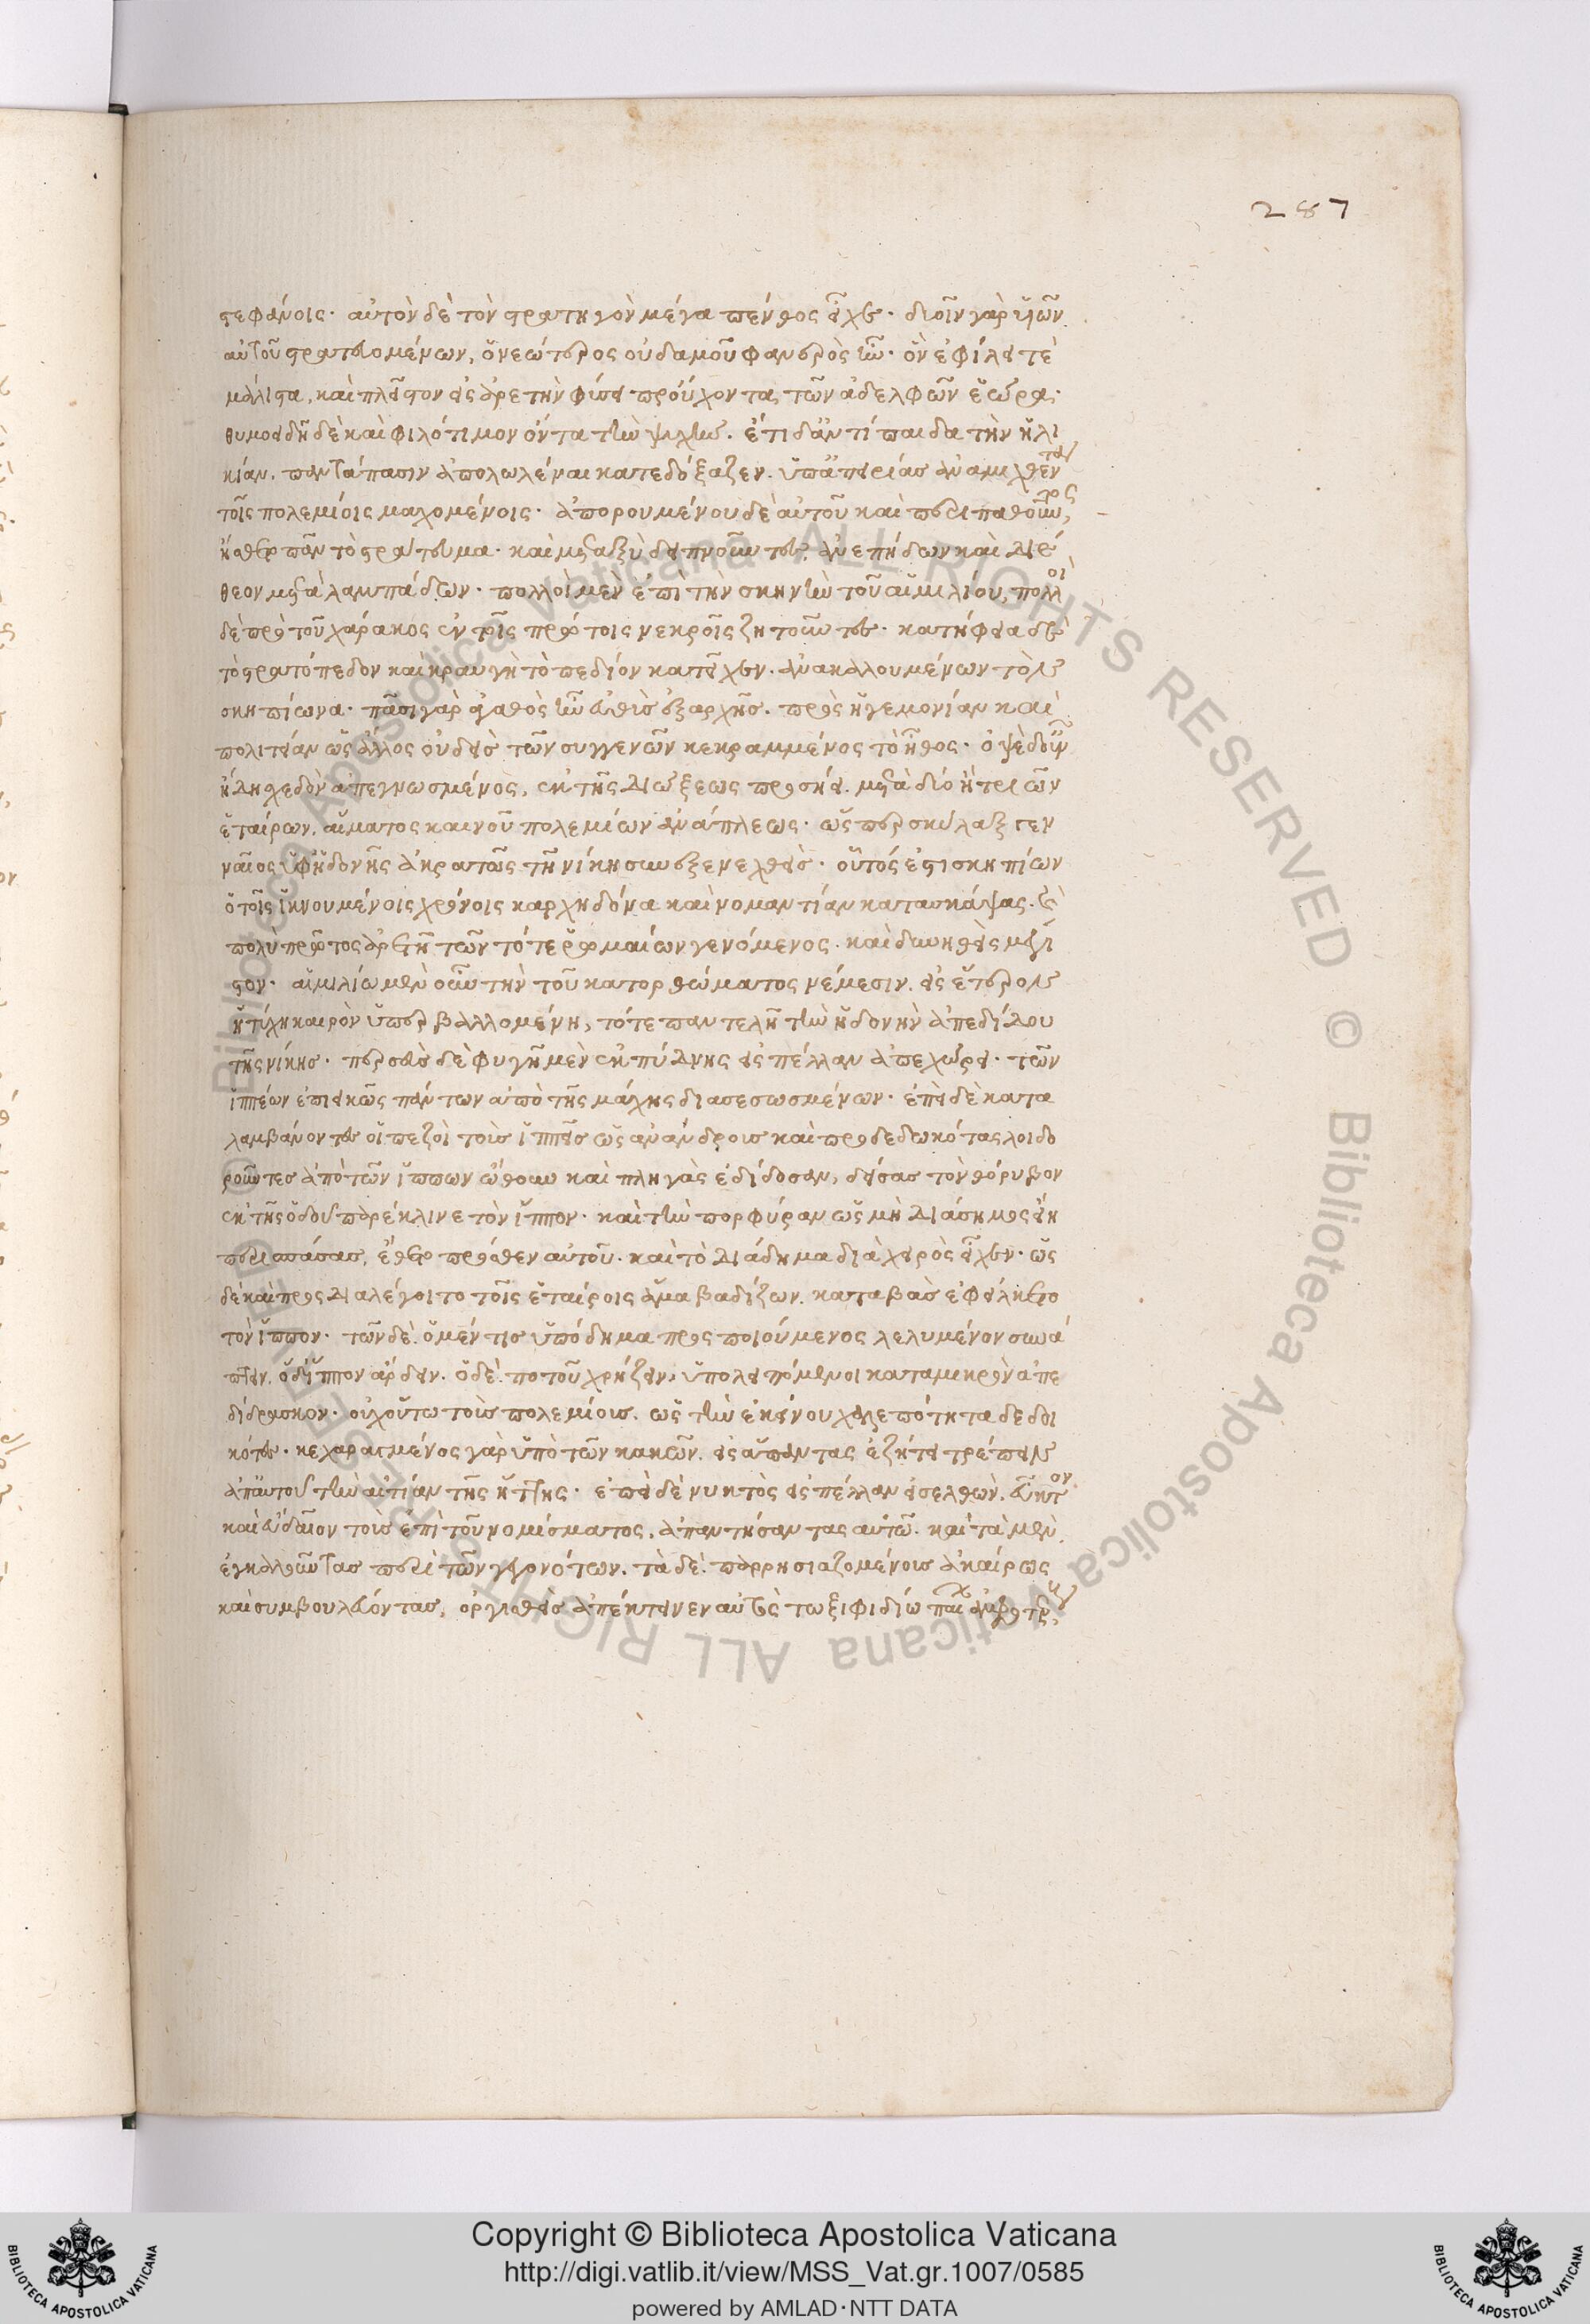 287
στεφάνοις· αὐτὸν δὲ τὸν στρατηγὸν μέγα πένθος εἶχε· δυοῖν γὰρ υἱῶν
αὐτοῦ στρατευομένων, ὁ νεώτερος οὐδαμοῦ φανερὸς ἦν· ὃν ἐφίλει τὲ
μάλιστα, καὶ πλεῖστον εἰς ἀρετὴν φύσει προύχοντα τῶν ἀδελφῶν ἑώρα·
θυμοειδῆ δὲ καὶ φιλότιμον ὄντα τὴν ψυχὴν. ἔτι δ' ἀντίπαιδα τὴν ἡλι
κίαν, παντάπασιν ἀπολωλέναι κατεδόξαζεν. ὑπ' ἀπειρίας ἀναμιχθέντα
τοῖς πολεμίοις μαχομένοις· ἀπορουμένου δὲ αὐτοῦ καὶ περιπαθοῦντος,
ᾔσθετο πᾶν τὸ στράτευμα· καὶ μεταξὺ δειπνοῦντες ἀνεπήδων καὶ διέ
θεον μετὰ λαμπάδων· πολλοὶ μὲν ἐπὶ τὴν σκηνὴν τοῦ αἰμιλίου, πολλοὶ
δὲ πρὸ τοῦ χάρακος ἐν τοῖς πρώτοις νεκροῖς ζητοῦντες· κατήφεια δὲ
τὸ στρατόπεδον καὶ κραυγὴ τὸ πεδίον κατεῖχεν· ἀνακαλουμένων τὸν
σκηπίωνα· πᾶσι γὰρ ἀγαθὸς ἦν εὐθὺς ἐξ ἀρχῆς· πρὸς ἡγεμονίαν καὶ
πολιτείαν ὡς ἄλλος οὐδεὶς τῶν συγγενῶν κεκραμμένος τὸ ἦθος· ὀψὲ δ' οὖν
ἤδη σχεδὸν ἀπεγνωσμένος, ἐκ τῆς διώξεως προσήει μετὰ δύο ἢ τριῶν
ἑταίρων, αἵματος καινοῦ πολεμίων ἀνάπλεως· ὥσπερ σκύλαξ γεν
ναῖος ὑφ' ἡδονῆς ἀκρατῶς τῇ νίκῃ συνεξενεχθεὶς· οὗτός ἐστι σκηπίων
ὁ τοῖς ἱκνουμένοις χρόνοις καρχηδόνα καὶ νομαντίαν κατασκάψας. καὶ
πολὺ πρῶτος ἀρετῇ τῶν τότε ῥωμαίων γενόμενος· καὶ δυνηθεὶς μέγι
στον· αἰμιλίῳ μὲν οὖν τὴν τοῦ κατορθώματος νέμεσιν, εἰς ἕτερον
ἡ τύχη καιρὸν ὑπερβαλλομένη, τότε παντελῆ τὴν ἡδονὴν ἀπεδίδου
τῆς νίκης· περσεὺς δὲ φυγῇ μὲν ἐκ πύδνης εἰς πέλλαν ἀπεχώρει· τῶν
ἱππέων ἐπιεικῶς πάντων ἀπὸ τῆς μάχης διασεσωσμένων· ἐπεὶ δὲ κατα
λαμβάνοντες οἱ πεζοὶ τοὺς ἱππεῖς ὡς ἀνάνδρους καὶ προδεδωκότας λοιδο
ροῦντες ἀπὸ τῶν ἵππων ὤθουν καὶ πληγὰς ἐδίδοσαν, δείσας τὸν θόρυβον
ἐκ τῆς ὁδοῦ παρέκλινε τὸν ἵππον· καὶ τὴν πορφύραν ὡς μὴ διάσημος εἴη
περισπάσας, ἔθετο πρόσθεν αὐτοῦ· καὶ τὸ διάδημα διὰ χειρὸς εἶχεν· ὡς
δὲ καὶ προςδιαλέγοιτο τοῖς ἑταίροις ἅμα βαδίζων, καταβὰς ἐφείλκετο
τὸν ἵππον· τῶν δὲ, ὁ μέν τις ὑπόδημα προςποιούμενος λελυμένον συνά
πτειν, ὁ δ' ἵππον ἄρδειν, ὁ δὲ ποτοῦ χρῄζειν, ὑπολειπόμενοι κατὰ μικρὸν ἀπε
δίδρασκον· οὐχ οὕτω τοὺς πολεμίους, ὡς τὴν ἐκείνου χαλεπότητα δεδοι
κότες· κεχαραγμένος γὰρ ὑπὸ τῶν κακῶν, εἰς ἅπαντας ἐζήτει τρέπειν
ἀφ' αὑτοῦ τὴν αἰτίαν τῆς ἥττης· ἐπεὶ δὲ νυκτὸς εἰς πέλλαν εἰσελθὼν, εὔκτον
καὶ εὐδαῖον τοὺς ἐπὶ τοῦ νομίσματος, ἀπαντήσαντας αὐτῷ· καὶ τὰ μὲν
ἐγκαλοῦντας περὶ τῶν γεγονότων, τὰ δὲ παρρησιαζομένους ἀκαίρως
καὶ συμβουλεύοντας, ὀργισθεὶς ἀπέκτεινεν αὐτὸς τῷ ξιφιδίῳ παίων ἀμφοτέρους,
Copyright © Biblioteca Apostolica Vaticana
http://digi.vatlib.it/view/MSS_Vat.gr.1007/0585
powered by AMLAD·NTT DATA